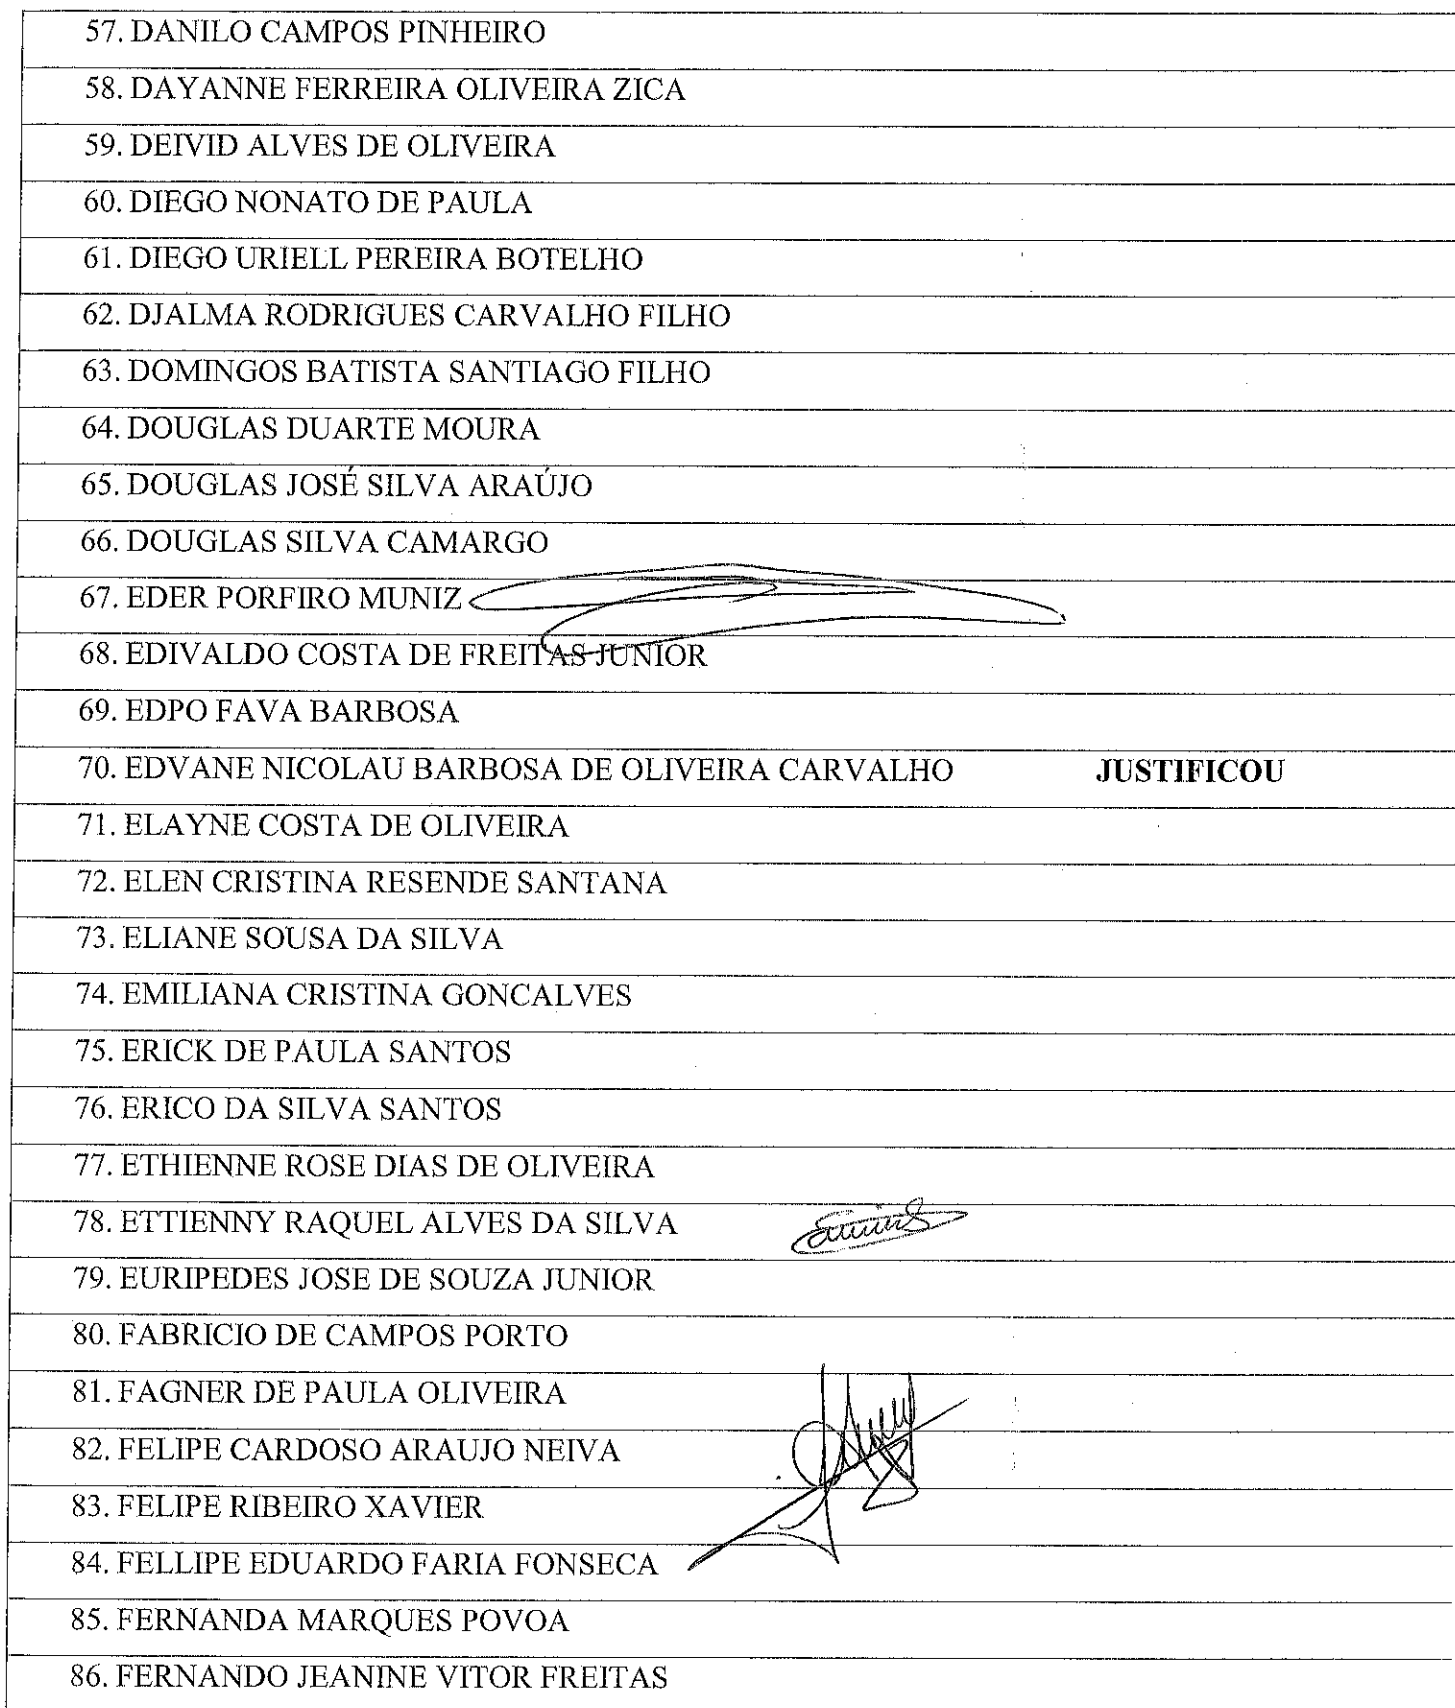 57. DANILO CAMPOS PINHEIRO
58. DAYANNE FERREIRA OLIVEIRA ZICA
59. DEIVID ALVES DE OLIVEIRA
60. DIEGO NONATO DE PAULA
61. DIEGO URIELL PEREIRA BOTELHO
62. DJALMA RODRIGUES CARVALHO FILHO
63. DOMINGOS BATISTA SANTIAGO FILHO
64. DOUGLAS DUARTE MOURA
65. DOUGLAS JOSÉ SILVA ARAÚJO
66. DOUGLAS SILVA CAMARGO
67. EDER PORFIRO MUNIZ
68. EDIVALDO COSTA DE FREITAS JUNIOR
69. EDPO FAVA BARBOSA
70. EDVANE NICOLAU BARBOSA DE OLIVEIRA CARVALHO JUSTIFICOU
71. ELAYNE COSTA DE OLIVEIRA
72. ELEN CRISTINA RESENDE SANTANA
73. ELIANE SOUSA DA SILVA
74. EMILIANA CRISTINA GONCALVES
75. ERICK DE PAULA SANTOS
76. ERICO DA SILVA SANTOS
77. ETHIENNE ROSE DIAS DE OLIVEIRA
78. ETTIENNY RAQUEL ALVES DA SILVA
79. EURIPEDES JOSE DE SOUZA JUNIOR
80. FABRICIO DE CAMPOS PORTO
81. FAGNER DE PAULA OLIVEIRA
82. FELIPE CARDOSO ARAUJO NEIVA
83. FELIPE RIBEIRO XAVIER
84. FELLIPE EDUARDO FARIA FONSECA
85. FERNANDA MARQUES POVOA
86. FERNANDO JEANINE VITOR FREITAS